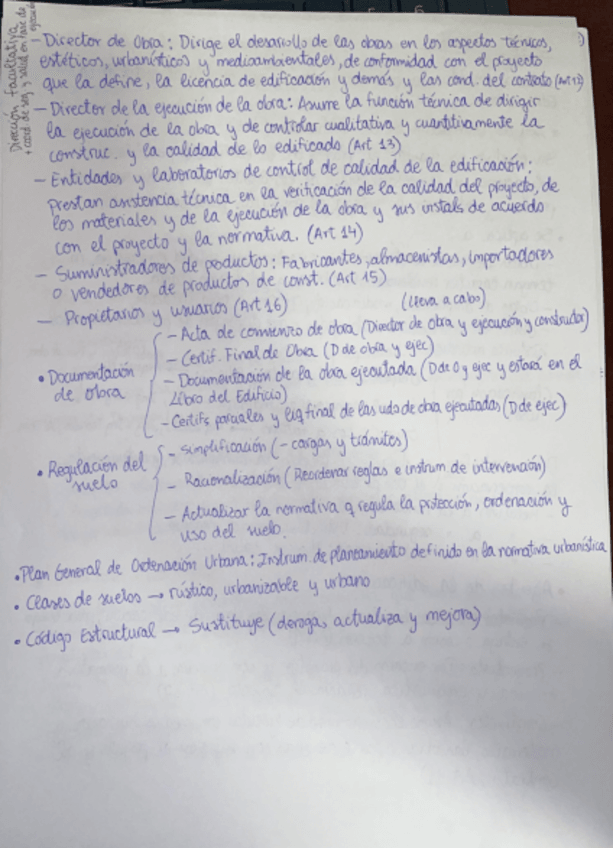 Dirección facultativa
+ coord. de seg y salud en fase de
ejecución
- Director de Obra: Dirige el desarrollo de las obras en los aspectos técnicos,
estéticos, urbanísticos y medioambientales, de conformidad con el proyecto
que la define, la licencia de edificación y demás y las cond. del contrato (Art 12)
- Director de la ejecución de la obra: Asume la función técnica de dirigir
la ejecución de la obra y de controlar cualitativa y cuantitivamente la
construc. y la calidad de lo edificado (Art 13)
- Entidades y laboratorios de control de calidad de la edificación:
Prestan asistencia técnica en la verificación de la calidad del proyecto, de
los materiales y de la ejecución de la obra y sus instals de acuerdo
con el proyecto y la normativa. (Art 14)
- Suministradores de productos: Fabricantes, almacenistas, importadores
o vendedores de productos de const. (Art 15)
- Propietarios y usuarios (Art 16)
(lleva a cabo)
- Acta de comienzo de obra (Director de obra y ejecución y constructor)
- Certif. Final de Obra (D de obra y ejec)
• Documentación
de obra
- Documentación de la obra ejecutada (D de O y ejec y estará en el
Libro del Edificio)
- Certifs parciales y liq final de las uds de obra ejecutadas (D de ejec)
• Regulación del
suelo
- Simplificación (- cargas y trámites)
- Racionalización (Reordenar reglas e instrum de intervención)
- Actualizar la normativa q regula la protección, ordenación y
uso del suelo.
• Plan General de Ordenación Urbana: Instrum. de planeamiento definido en la normativa urbanística
• Clases de suelos → rústico, urbanizable y urbano
• Código Estructural → Sustituye (deroga, actualiza y mejora)